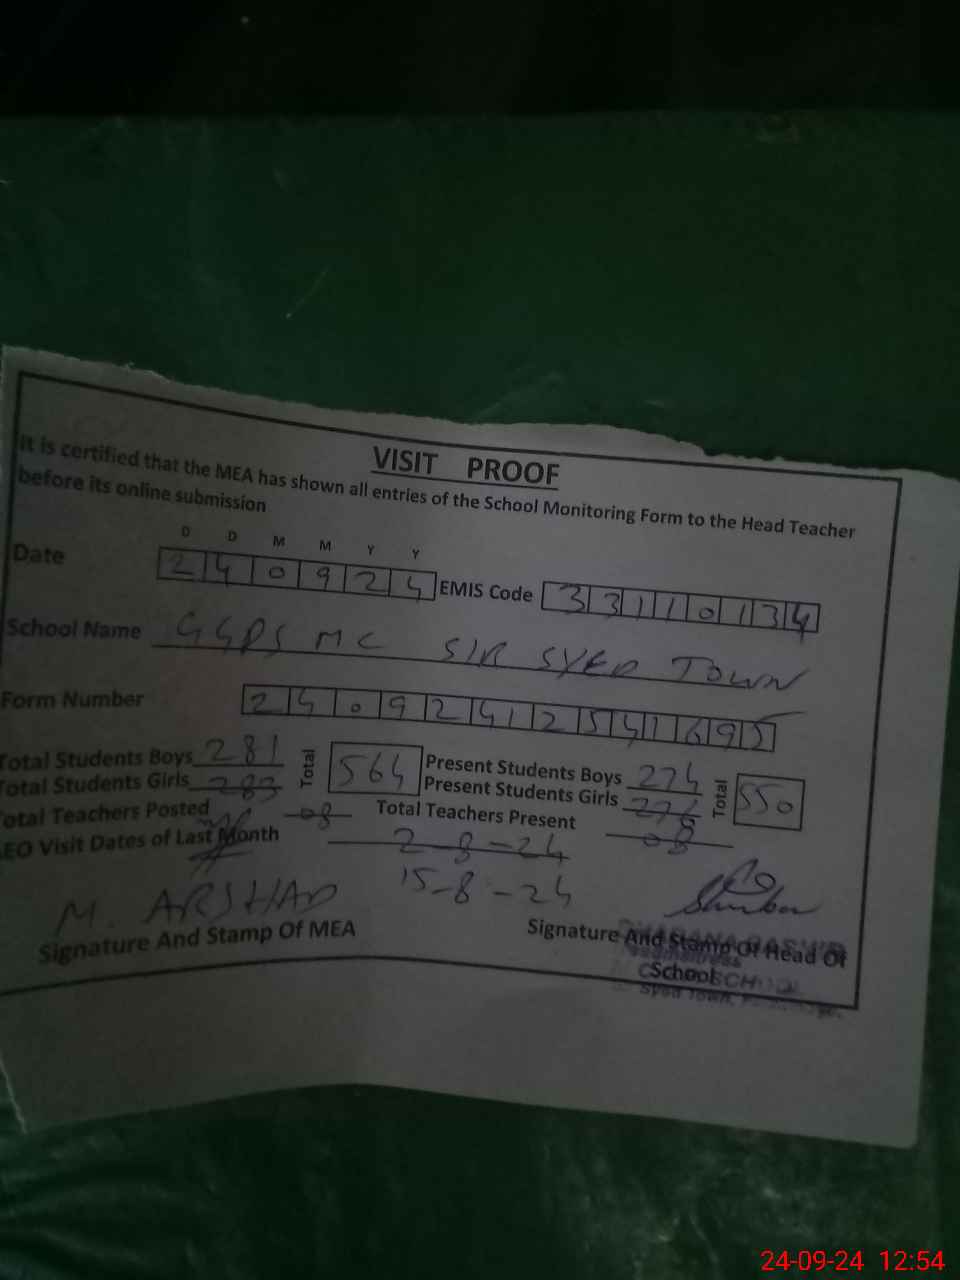 VISIT PROOF
It is certified that the MEA has shown all entries of the School Monitoring Form to the Head Teacher
before its online submission
D D M M Y Y
Date 240924 EMIS Code 33110134
School Name GGPS MC SIR SYED TOWN
Form Number 24092412541695
Total Students Boys 281 Total 564 Present Students Boys 274 Total 550
Total Students Girls 283 Present Students Girls 276
Total Teachers Posted 08 Total Teachers Present 08
AEO Visit Dates of Last Month 2-8-24
15-8-24
M. ARSHAD
Signature And Stamp Of MEA Signature And Stamp Of Head Of
School
SCHOOL
Syed Town,
24-09-24 12:54